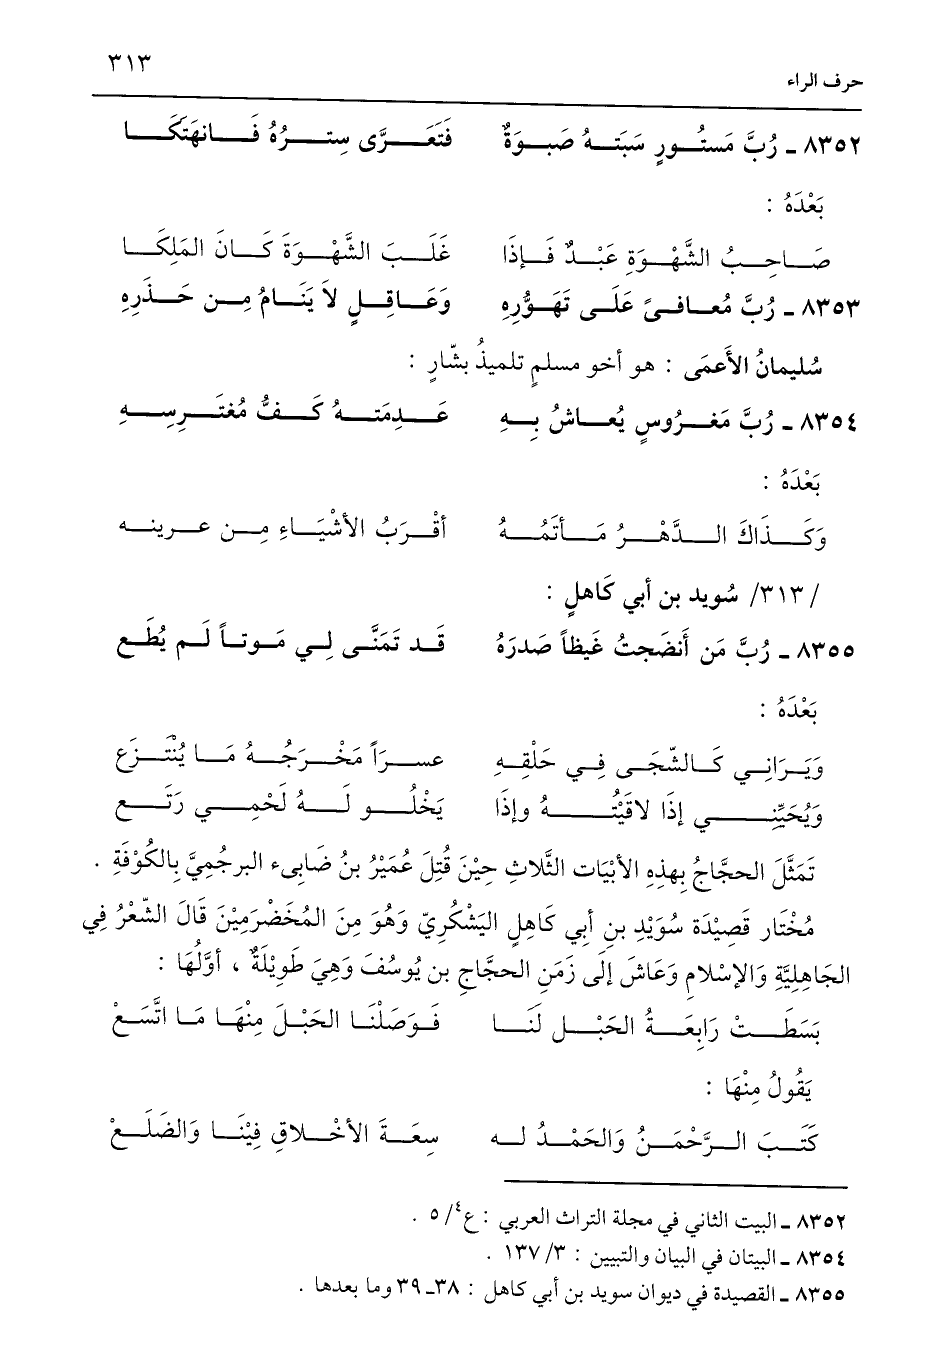 ٣١٣
حرف الراء
٨٣٥٢ ـ رُبَّ مَستُورٍ سَبَتهُ صَبوَةٌ فَتَعَرَّى سِترُهُ فَانهَتَكَا
بَعْدَهُ :
صَاحِبُ الشَّهْوَةِ عَبْدٌ فَإِذَا غَلَبَ الشَّهْوَةَ كَانَ المَلِكَا
٨٣٥٣ ـ رُبَّ مُعافىً عَلَى تَهَوُّرِهِ وَعَاقِلٍ لاَ يَنَامُ مِن حَذَرِهِ
سُليمانُ الأَعمَى : هو أخو مسلمٍ تلميذُ بشّارٍ :
٨٣٥٤ ـ رُبَّ مَغرُوسٍ يُعاشُ بِهِ عَدِمَتهُ كَفُّ مُغتَرِسِهِ
بَعْدَهُ :
وَكَذَاكَ الدَّهْرُ مَأتَمُهُ أقْرَبُ الأشْيَاءِ مِن عرينه
/ ٣١٣/ سُويد بن أبي كَاهلٍ :
٨٣٥٥ ـ رُبَّ مَن أَنضَجتُ غَيظاً صَدرَهُ قَد تَمَنَّى لِي مَوتاً لَم يُطَع
بَعْدَهُ :
وَيَرَانِي كَالشَّجَى فِي حَلْقِهِ عسراً مَخْرَجُهُ مَا يُنْتَزَع
وَيُحَيِّنِي إذَا لاقَيْتُهُ وإذَا يَخْلُو لَهُ لَحْمِي رَتَع
تَمَثَّلَ الحجَّاجُ بِهذِهِ الأبْيَات الثَّلاثِ حِيْنَ قُتِلَ عُمَيْرُ بنُ ضَابِىء البرجُمِيَّ بِالكُوْفَةِ .
مُخْتَار قَصِيْدَة سُوَيْدِ بنِ أبي كَاهِلٍ اليَشْكُرِيّ وَهُوَ مِنَ المُخَضْرَمِيْنَ قَالَ الشّعْرُ فِي
الجَاهِلِيَّةِ وَالإسْلامِ وَعَاشَ إلَى زَمَنِ الحجَّاجِ بن يُوسُفَ وَهِيَ طَوِيْلَةٌ ، أوَّلُهَا :
بَسَطَتْ رَابِعَةُ الحَبْلِ لَنَا فَوَصَلْنَا الحَبْلَ مِنْهَا مَا اتَّسَعْ
يَقُولُ مِنْهَا :
كَتَبَ الرَّحْمَنُ وَالحَمْدُ له سِعَةَ الأخْلاقِ فِيْنَا وَالضَلَعْ
٨٣٥٢ ـ البيت الثاني في مجلة التراث العربي : ع٤/ ٥ .
٨٣٥٤ ـ البيتان في البيان والتبيين : ٣/ ١٣٧ .
٨٣٥٥ ـ القصيدة في ديوان سويد بن أبي كاهل : ٣٨ـ ٣٩ وما بعدها .